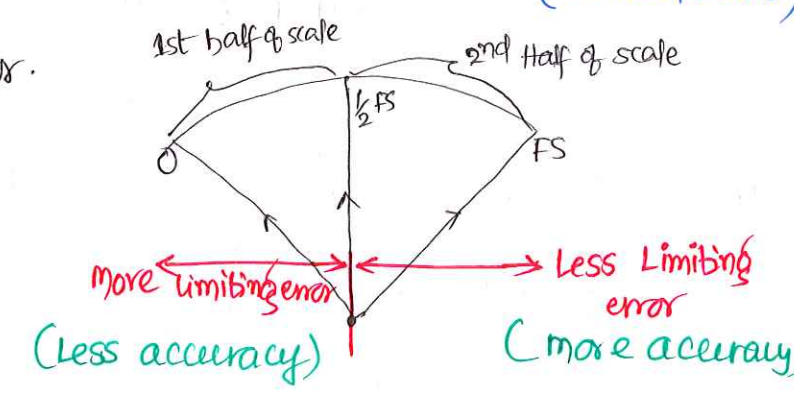 1st half of scale
2nd Half of scale
r.
1/2 FS
0
FS
more limiting error
Less Limiting
error
(Less accuracy)
(more accuracy